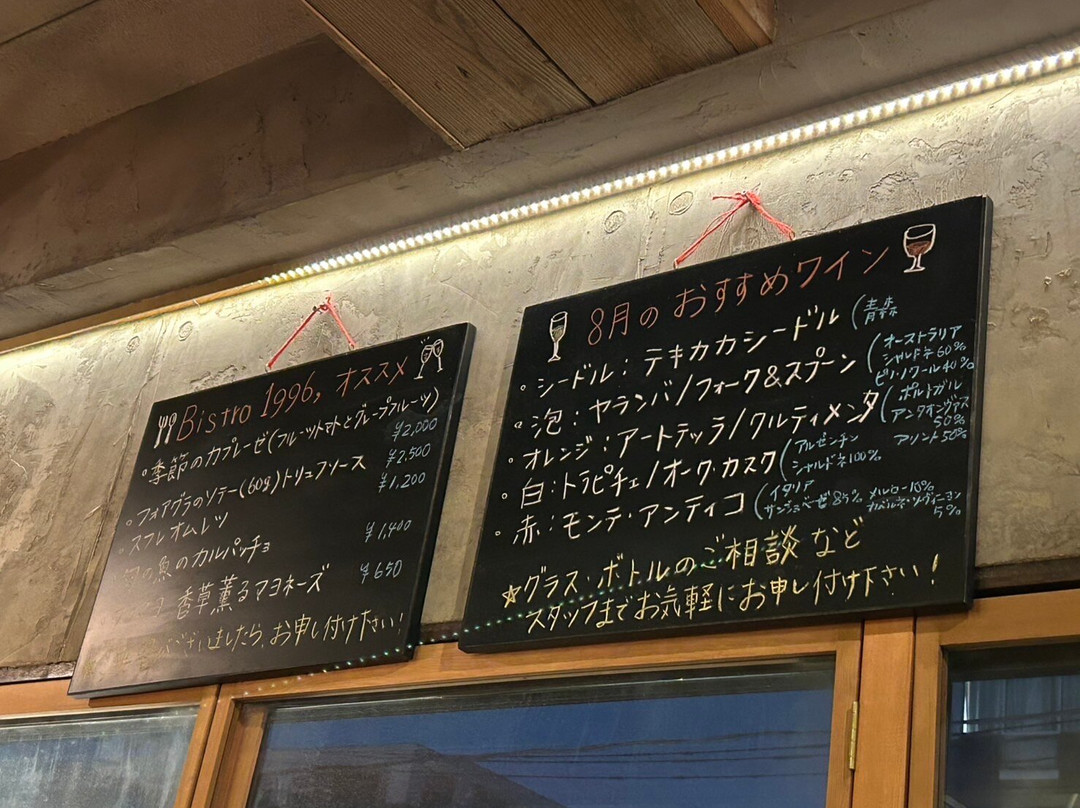 Bistro 1996, オススメ
・季節のカプレーゼ(フルーツトマトとグレープフルーツ)
¥2,000
・フォアグラのソテー(60g)トリュフソース
¥2,500
・スフレオムレツ
¥1,200
の魚のカルパッチョ
¥1,400
香草薫るマヨネーズ
¥650
ございましたら、お申し付け下さい!
8月のおすすめワイン
・シードル:テキカカシードル(青森
・泡:ヤランバ/フォーク&スプーン(オーストラリア
シャルドネ60%
ピノ・ノワール40%
・オレンジ:アートテッラ/クルティメンタ(ポルトガル
アンタオンヴァス
50%
アリント50%
・白:トラピチェ/オーク・カスク(アルゼンチン
シャルドネ100%
・赤:モンテ・アンティコ(イタリア
サンジョベーゼ85% メルロー10%
カベルネ・ソヴィニヨン
5%
☆グラス・ボトルのご相談など
スタッフまでお気軽にお申し付け下さい!